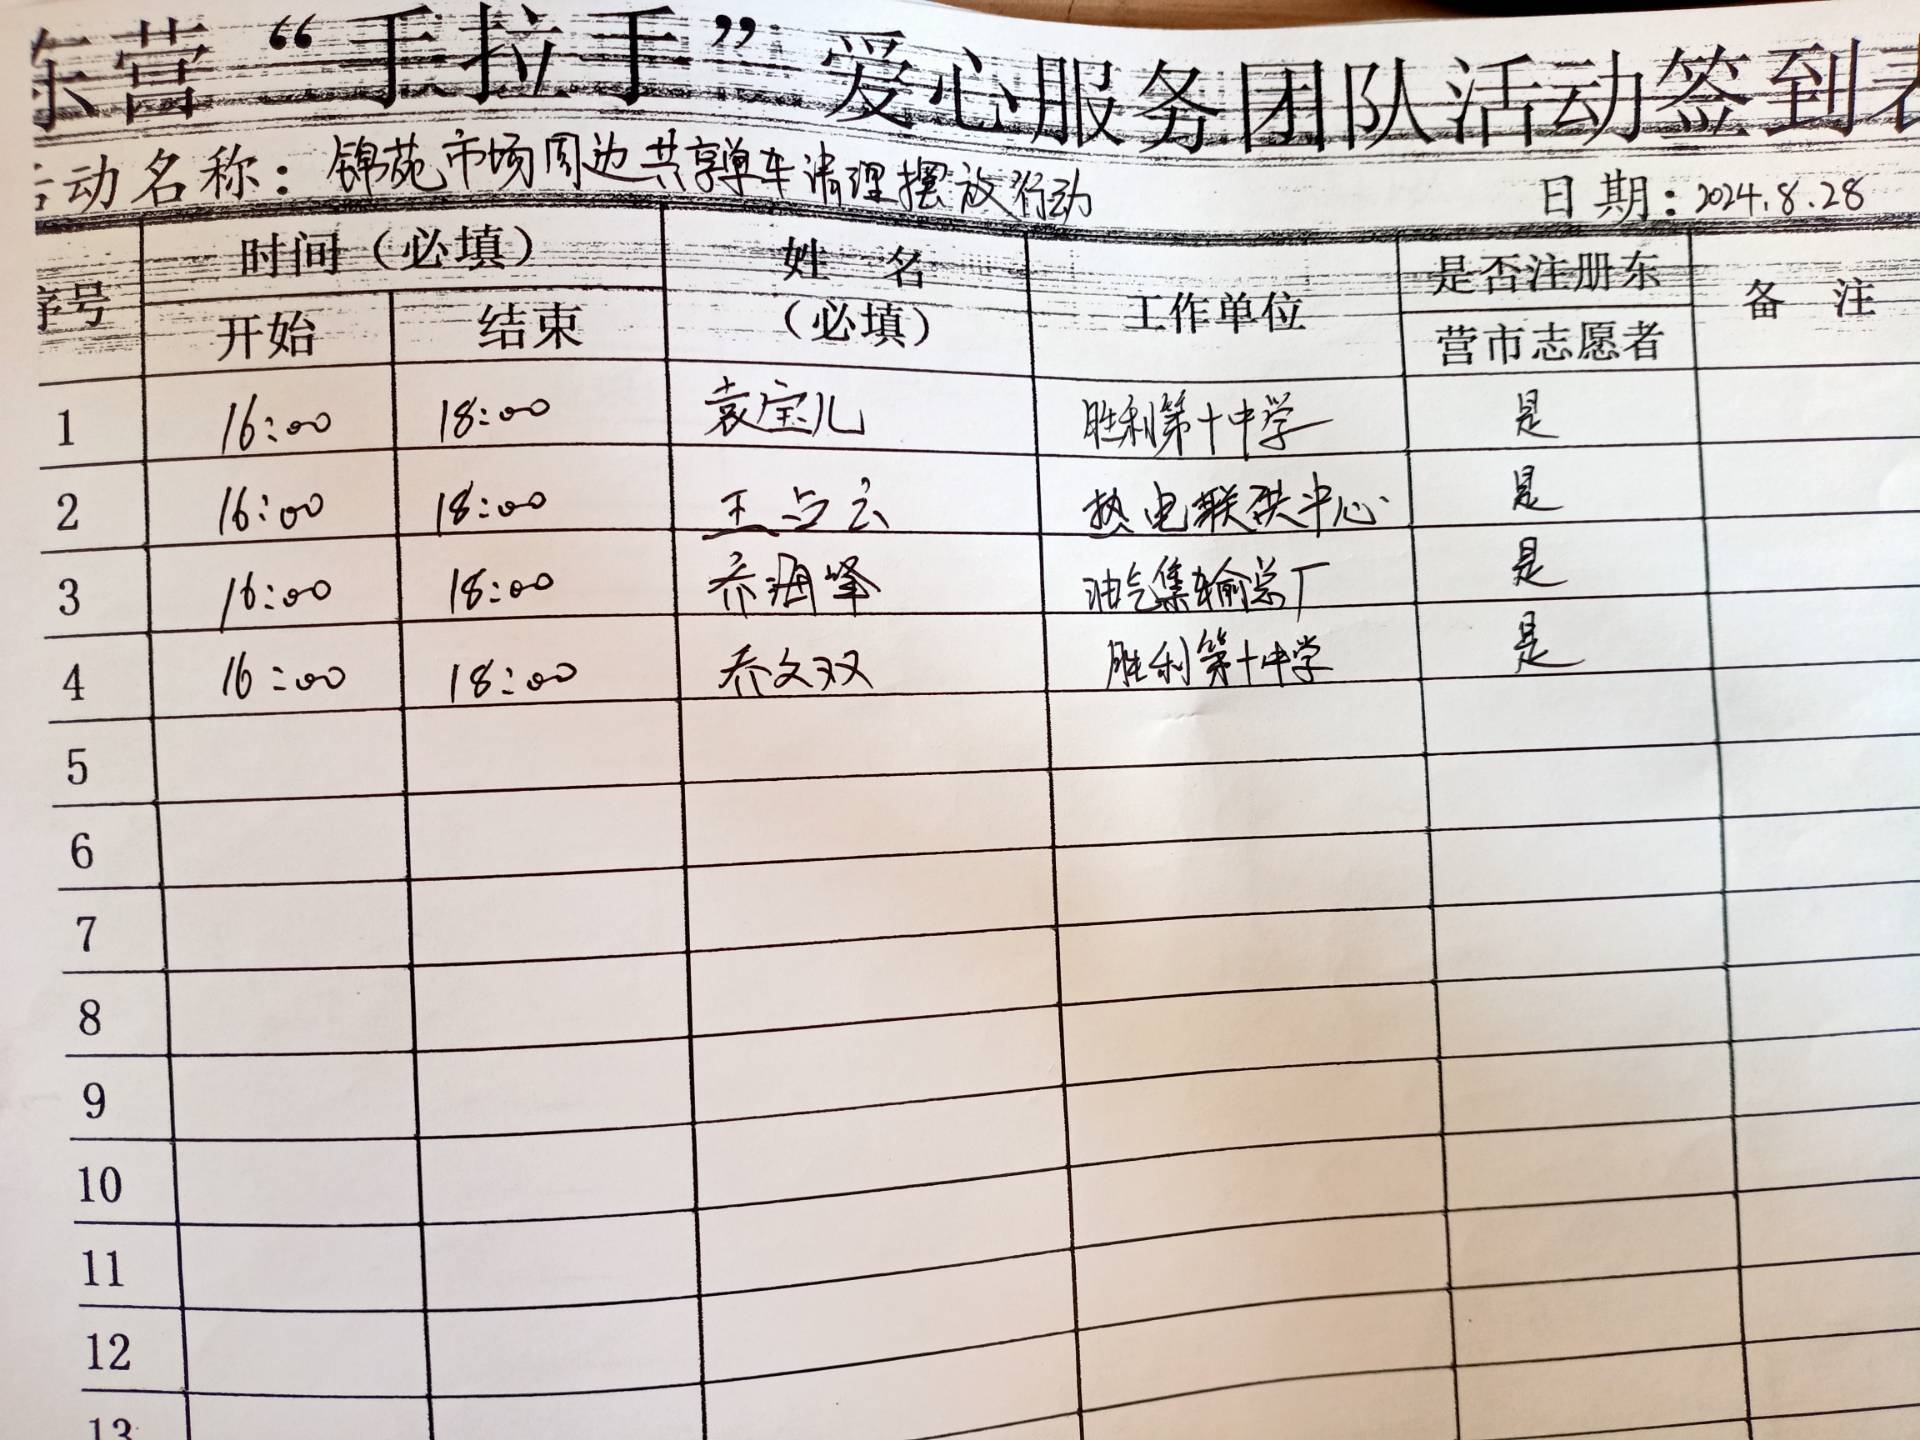 东营“手拉手”爱心服务团队活动签到表
活动名称：锦苑市场周边共享单车清理摆放行动 日期：2024.8.28
序号 时间（必填） 姓 名（必填） 工作单位 是否注册东营市志愿者 备 注
开始 结束
1 16:00 18:00 袁宝儿 胜利第十中学 是
2 16:00 18:00 王占云 热电联供中心 是
3 16:00 18:00 乔海峰 油气集输总厂 是
4 16:00 18:00 乔文双 胜利第十中学 是
5
6
7
8
9
10
11
12
13